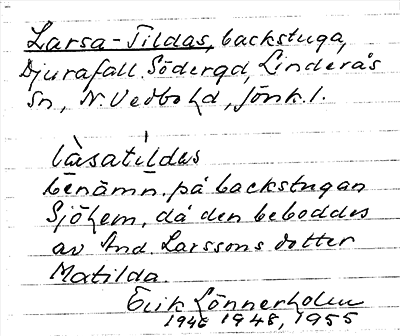 Larsa-Tildas, backstuga,
Djurafall Södergd, Linderås
Sn, N. Vedbo hd, Jönk. l.
làsatìldas
benämn. på backstugan
Sjöhem, då den beboddes
av And. Larssons dotter
Matilda.
Erik Lönnerholm
1946 1948, 1955